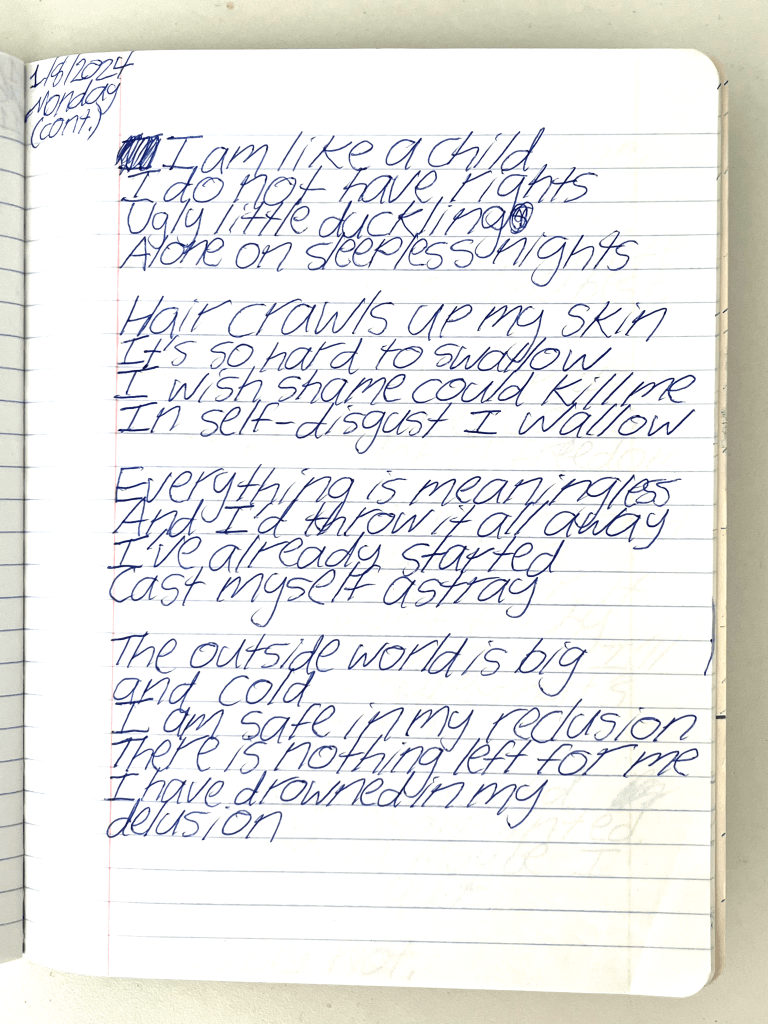 1/8/2024
Monday
(cont.)
I am like a child
I do not have rights
Ugly little duckling
Alone on sleepless nights
Hair crawls up my skin
It's so hard to swallow
I wish shame could kill me
In self-disgust I wallow
Everything is meaningless
And I'd throw it all away
I've already started
Cast myself astray
The outside world is big
and cold
I am safe in my reclusion
There is nothing left for me
I have drowned in my
delusion